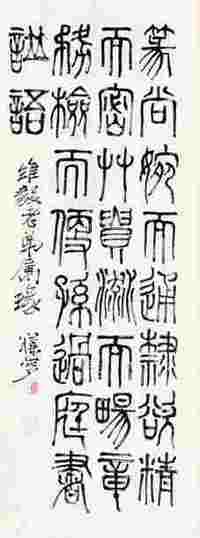 篆尚婉而通隸欲精
而密艸貴流而暢章
務檢而便孫過庭書
譜語
維毅老弟